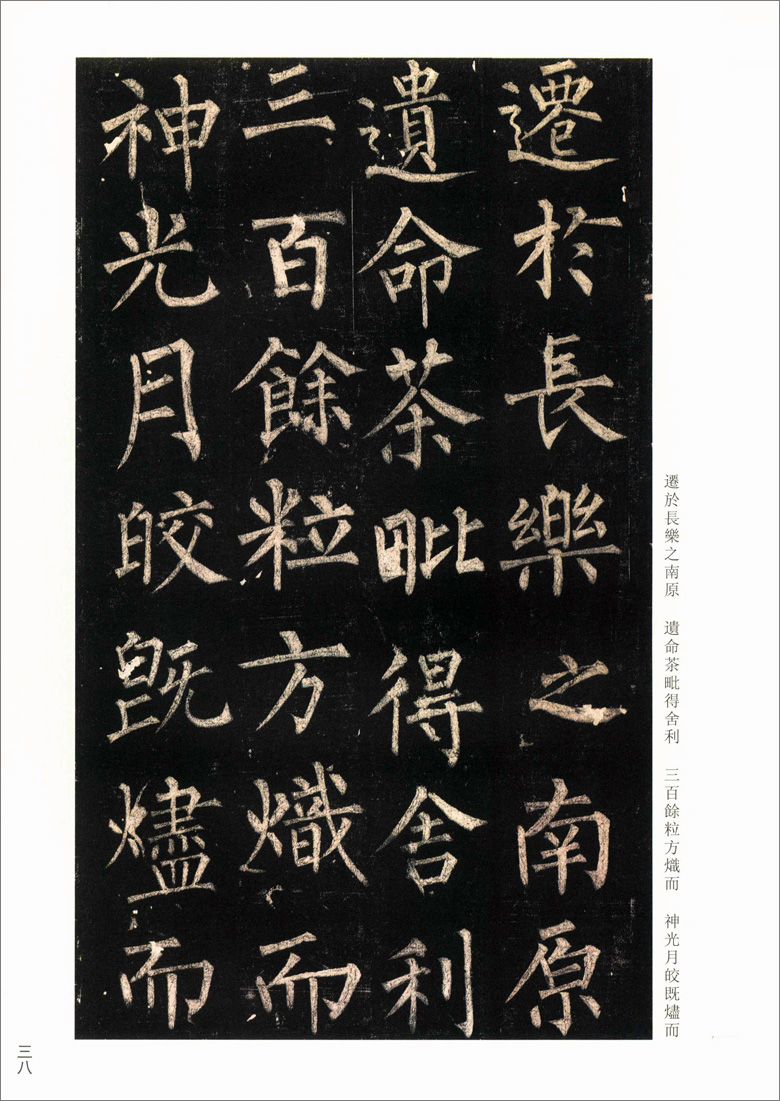 遷於長樂之南原
遺命茶毗得舍利
三百餘粒方熾而
神光月皎既燼而
遷於長樂之南原　遺命茶毗得舍利　三百餘粒方熾而　神光月皎既燼而
三八